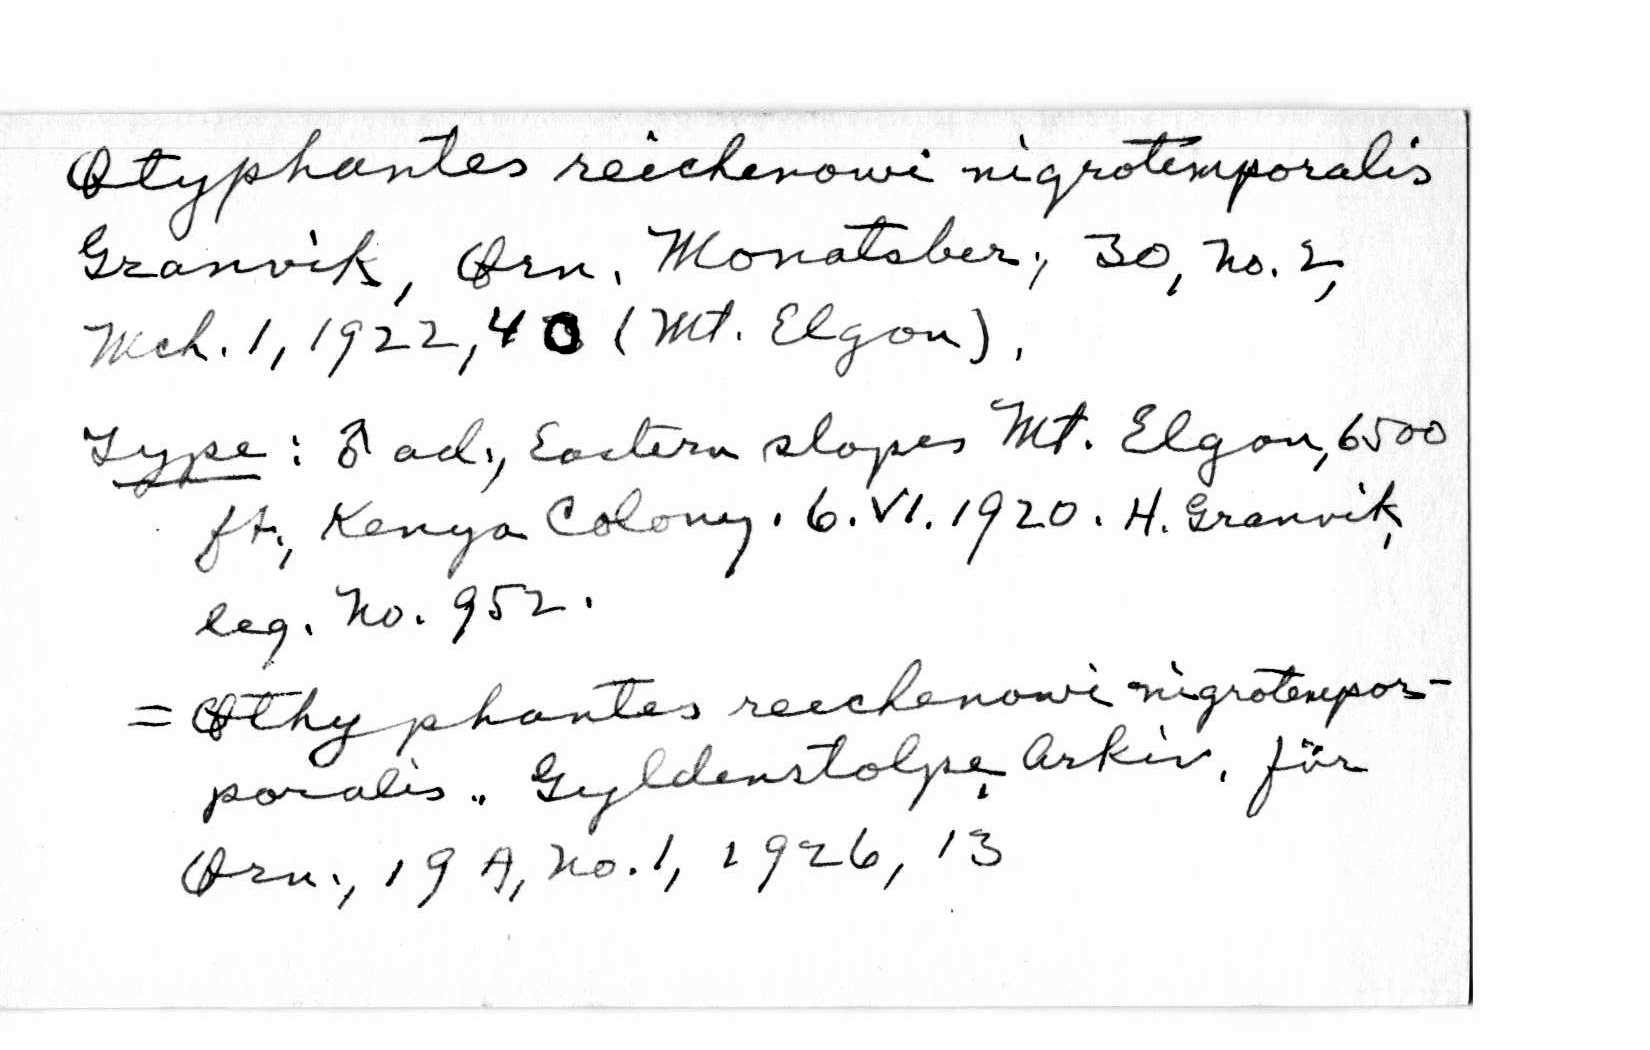 Otyphantes reichenowi nigrotemporalis
Granvik, Orn. Monatsber., 30, no. 2,
Mch. 1, 1922, 40 (Mt. Elgon).
Type: ♂ ad., Eastern slopes Mt. Elgon, 6500
ft., Kenya Colony. 6. VI. 1920. H. Granvik,
leg. No. 952.
= Othyphantes reichenowi nigrotempor-
poralis.. Gyldenstolpe, Arkiv. für
Orn., 19 A, no. 1, 1926, 13